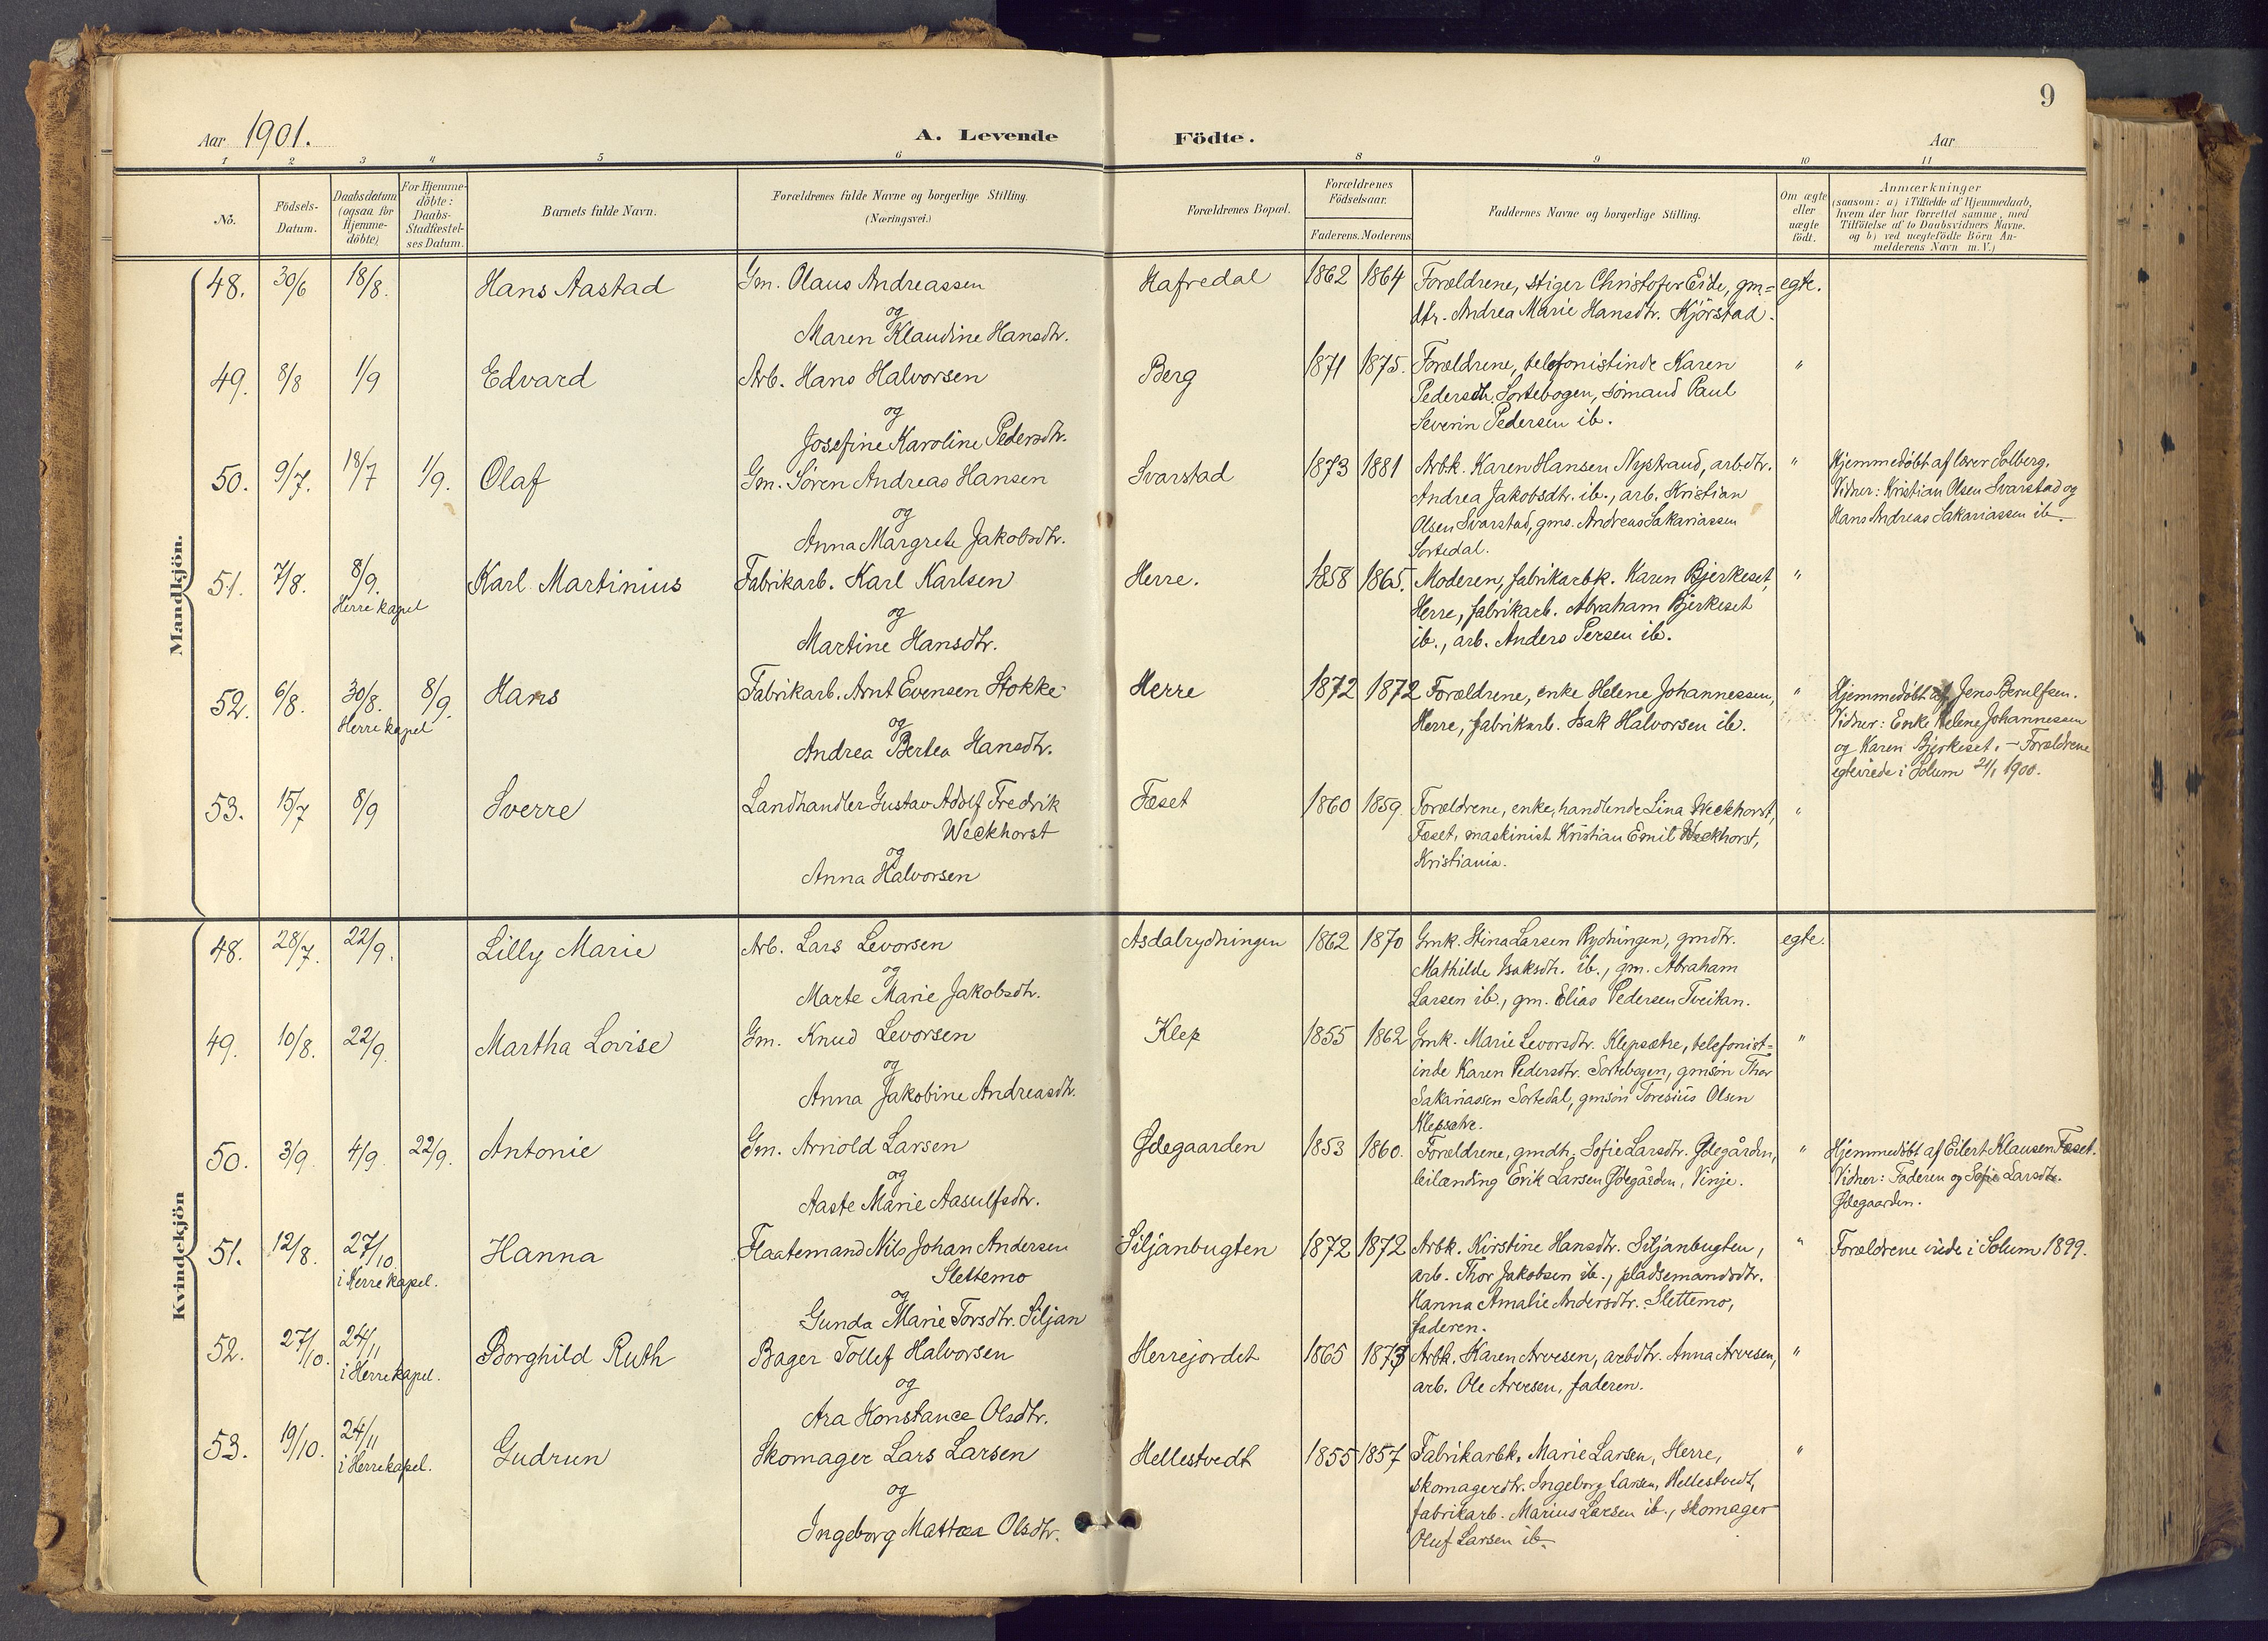 9
Aar 1901.
A. Levende Födte.
Aar
1 2 3 4 5 6 8 9 10 11
No.
Födsels-Datum.
Daabsdatum (ogsaa for Hjemme-döbte)
For Hjemme-döbte: Daabs-Stadfæstel-ses Datum.
Barnets fulde Navn.
Forældrenes fulde Navne og borgerlige Stilling. (Næringsvei.)
Forældrenes Bopæl.
Forældrenes Födselsaar.
Faderens. Moderens.
Faddernes Navne og borgerlige Stilling.
Om ægte eller uægte födt.
Anmærkninger
(saasom: a) i Tilfælde af Hjemmedaab,
hvem der har forrettet samme, med
Tilföielse af to Daabsvidners Navne.
og b) ved uægtefödte Börn An-
melderens Navn m. V.)
Mandkjön.
48. 30/6 18/8. Hans Aastad
Gm. Olaus Andreassen
og
Maren Klaudine Hansdtr.
Hafredal 1862 1864
Forældrene, stiger Christofer Eide, gm=
dtr. Andrea Marie Hansdtr. Kjörstad.
egte.
49. 8/8 1/9 Edvard
Arb. Hans Halvorsen
og
Josefine Karoline Pedersdtr.
Berg 1871 1875.
Forældrene, telefonistinde Karen
Pedersdtr. Sortebogen, sömand Paul
Severin Pedersen ib.
"
50. 9/7. 18/7 1/9. Olaf
Gm. Sören Andreas Hansen
og
Anna Margrete Jakobsdtr.
Svarstad 1873 1881
Arbk. Karen Hansen Nystrand, arbdtr.
Andrea Jakobsdtr. ib., arb. Kristian
Olsen Svarstad, gms. Andreas Sakariassen
Sortedal.
"
Hjemmedöbt af lærer Solberg.
Vidner: Kristian Olsen Svarstad og
Hans Andreas Sakariassen ib.
51. 7/8. 8/9. Herre kapel Karl Martinius
Fabrikarb. Karl Karlsen
og
Martine Hansdtr.
Herre. 1858 1865.
Moderen, fabrikarbk. Karen Bjerkeset,
Herre, fabrikarb. Abraham Bjerkeset
ib., arb. Anders Persen ib.
"
52. 6/8. 30/8. Herre kapel 8/9. Hans
Fabrikarb. Arnt Evensen Stokke
og
Andrea Bertea Hansdtr.
Herre 1872 1872
Forældrene, enke Helene Johannessen,
Herre, fabrikarb. Isak Halvorsen ib.
"
Hjemmedöbt af Jens Berulfsen.
Vidner: Enke Helene Johannessen
og Karen Bjerkeset. - Forældrene
egteviede i Solum 21/1 1900.
53. 15/7 8/9 Sverre
Landhandler Gustav Adolf Fredrik
Weckhorst
og
Anna Halvorsen
Foset 1860 1859.
Forældrene, enke, handlende Lina Weckhorst,
Foset, maskinist Kristian Emil Weckhorst,
Kristiania.
"
Kvindekjön
48. 28/7. 22/9. Lilly Marie
Arb. Lars Levorsen
og
Marte Marie Jakobsdtr.
Asdalrydningen 1862 1870
Gmk. Stina Larsen Rydningen, gmdtr.
Mathilde Isaksdtr. ib., gm. Abraham
Larsen ib., gm. Elias Pedersen Tveitan.
egte.
49. 10/8. 22/9. Martha Lovise
Gm. Knud Levorsen
og
Anna Jakobine Andreasdtr.
Klep 1855 1862
Gmk. Marie Levorsdtr. Klepsætre, telefonist=
inde Karen Pedersdtr. Sortebogen, gmsön Thor
Sakariassen Sortedal, gmsön Toresius Olsen
Klepsætre.
"
50. 3/9 4/9 22/9. Antonie
Gm. Arnold Larsen
og
Aaste Marie Aasulfsdtr.
Ødegaarden 1853 1860.
Forældrene, gmdtr. Sofie Larsdtr. Ødegården,
leilænding Erik Larsen Ødegården, Vinje.
"
Hjemmedöbt af Eilert Klausen Foset.
Vidner: Faderen og Sofie Larsdtr.
Ødegaarden.
51. 12/8. 27/10 i Herre kapel. Hanna
Flaatemand Nils Johan Andersen
Slettemo
og
Gunda Marie Torsdtr. Siljan
Siljanbugten 1872 1872
Arbk. Kirstine Hansdtr. Siljanbugten,
arb. Thor Jakobsen ib., pladsemandsdtr.
Hanna Amalie Andersdtr. Slettemo,
faderen.
"
Forældrene viede i Solum 1899.
52. 27/10. 24/11 i Herre kapel. Borghild Ruth
Bager Tollef Halvorsen
og
Ara Konstance Olsdtr.
Herrejordet 1865 1873
Arbk. Karen Arvesen, arbdtr. Anna Arvesen,
arb. Ole Arvesen, faderen.
"
53. 19/10. 24/11 i Herre kapel. Gudrun
Skomager Lars Larsen
og
Ingeborg Mattea Olsdtr.
Hellestvedt 1855 1857
Fabrikarbk. Marie Larsen, Herre,
skomagerdtr. Ingeborg Larsen, Hellestvedt,
fabrikarb. Marius Larsen ib., skomager
Oluf Larsen ib.
"